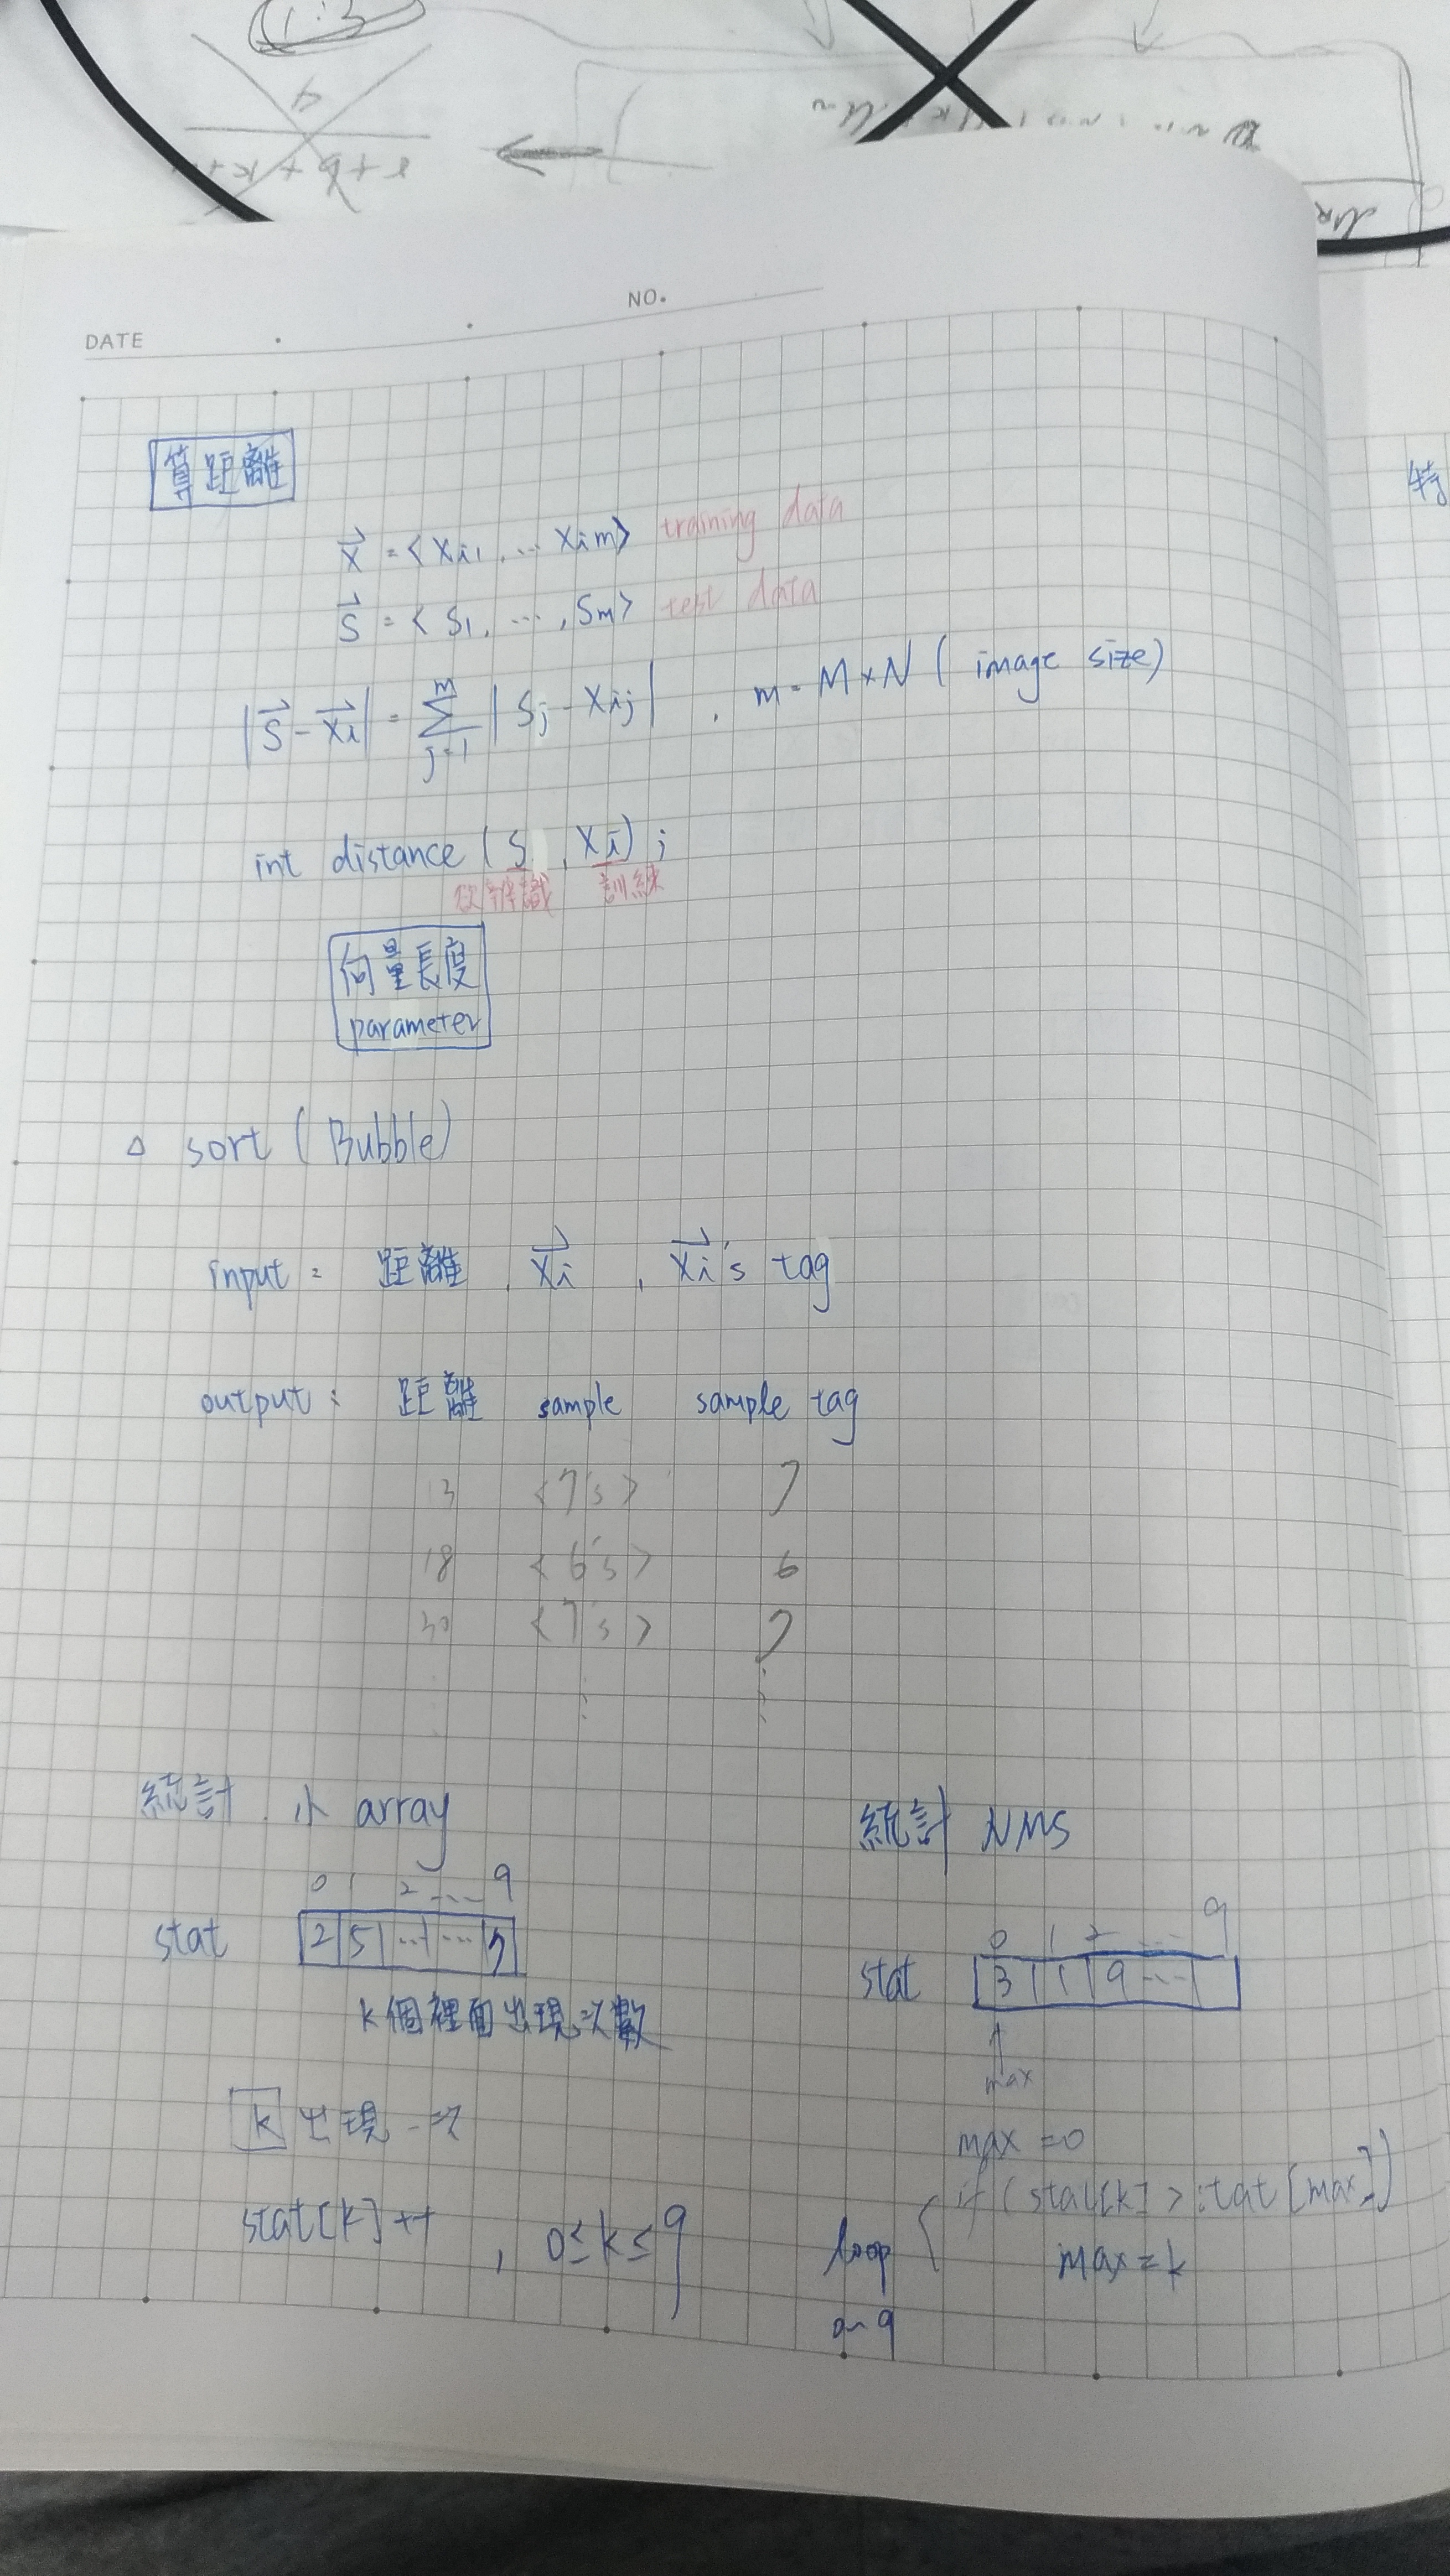 NO.
DATE
算距離
X = < Xi1, ... Xim> training data
S = < S1, ..., Sm> test data
|S - Xi| = Σ j=1 m | Sj - Xij | , m = M×N ( image size)
int distance ( S , Xi) ;
欲辨識 訓練
向量長度
parameter
△ sort ( Bubble)
input : 距離 , Xi , Xi's tag
output : 距離 sample sample tag
13 <7's> 7
18 <6's> 6
30 <7's> 7
統計 . 小 array
0 1 2 ... 9
stat 2 5 ... ...
k個裡面出現次數
k 出現一次
stat[k]++ , 0≤k≤9
統計 NMS
0 1 2 ... 9
stat 3 1 9 ...
max
max = 0
if (stat[k] > stat[max])
loop max = k
0~9
特